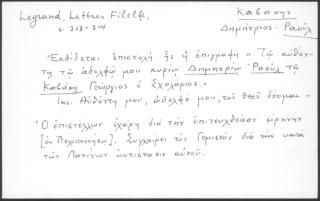 Legrand, Lettres Filelfe,
σ. 313-314
Καβάκης
Δημήτριος - Ραούλ
"Ἐκδίδεται ἐπιστολὴ ἧς ἡ ἐπιγραφὴ "Τῷ αὐθέν-
τῃ τῷ ἀδελφῷ μου κυρίῳ Δημητρίῳ Ῥαοὺλ τῷ
Καβάκῃ Γεώργιος ὁ Σχολάριος."
Inc. Αὐθέντη μου, ἀδελφέ μου, τοῦ θεοῦ δέομαι"
Ὁ ἐπιστέλλων ἐχάρη διὰ τὴν ἐπιτευχθεῖσαν εἰρήνην
[ἐν Πελοποννήσῳ]. Συγχαίρει τὸν Γεμιστὸν διὰ τὴν κατὰ
τῶν Λατίνων ἀντίστασιν αὐτοῦ.